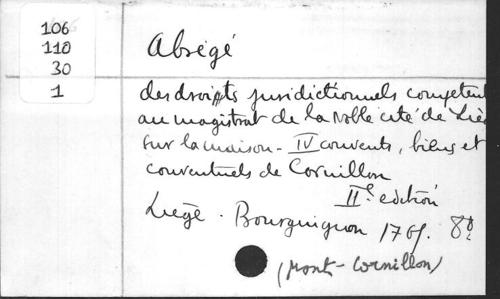 106
110
30
1
Abrégé
des droits juridictionnels competent
au magistrat de la Noble cité de Liè
sur la maison - IV couvents, biens et
conventuels de Cornillon
IIe. edition
Liège . Bourguignon 176 . 8°
(Mont-Cornillon)